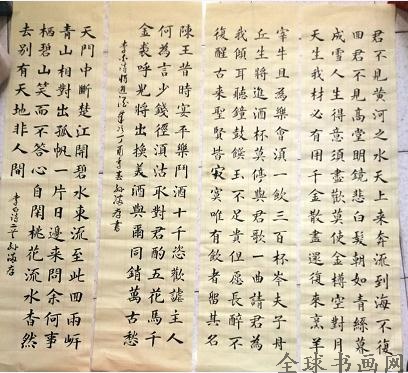 君不見黄河之水天上來奔流到海不復
回君不見高堂明鏡悲白髮朝如青絲暮
成雪人生得意須盡歡莫使金樽空對月
天生我材必有用千金散盡還復來烹羊
宰牛且為樂會須一飲三百杯岑夫子丹
丘生將進酒杯莫停與君歌一曲請君為
我傾耳聽鐘鼓饌玉不足貴但愿長醉不
復醒古來聖賢皆寂寞唯有飲者留其名
陳王昔時宴平樂鬥酒十千恣歡謔主人
何為言少錢徑須沽取對君酌五花馬千
金裘呼兒將出換美酒與爾同銷萬古愁
李白詩將進酒 丁酉年 書
天門中斷楚江開碧水東流至此回兩岸
青山相對出孤帆一片日邊來問余何事
栖碧山笑而不答心自閑桃花流水杳然
去别有天地非人間 李白詩二首
全球书画网